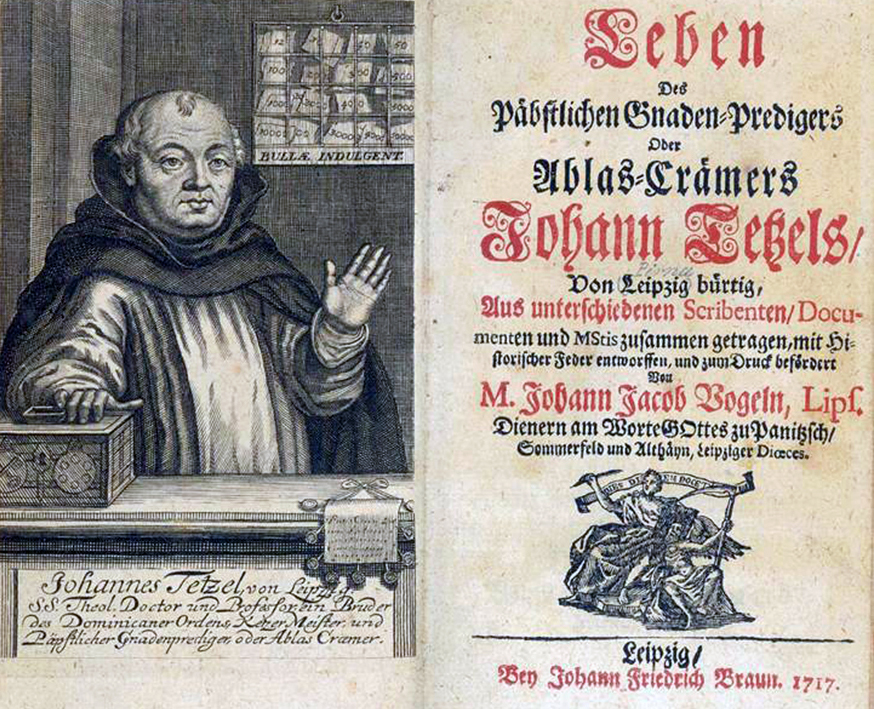 12
50
50
100
500
1000
5000
BULLÆ INDULGENT.
Johannes Tetzel, von Leipzig,
S.S. Theol. Doctor und Professor, ein Bruder
des Dominicaner Ordens, Ketzer Meister, und
Päpstlicher Gnadenprediger, oder Ablas Cræmer.
Leben
Des
Päbstlichen Gnaden-Predigers
Oder
Ablas-Crämers
Johann Tetzels/
Von Leipzig bürtig,
Aus unterschiedenen Scribenten/ Docu-
menten und MStis zusammen getragen, mit Hi-
storischer Feder entworffen, und zum Druck befördert
Von
M. Johann Jacob Vogeln, Lips.
Dienern am Worte GOttes zu Panitzsch/
Sommerfeld und Althäyn, Leipziger Diœces.
Leipzig/
Bey Johann Friedrich Braun. 1717.